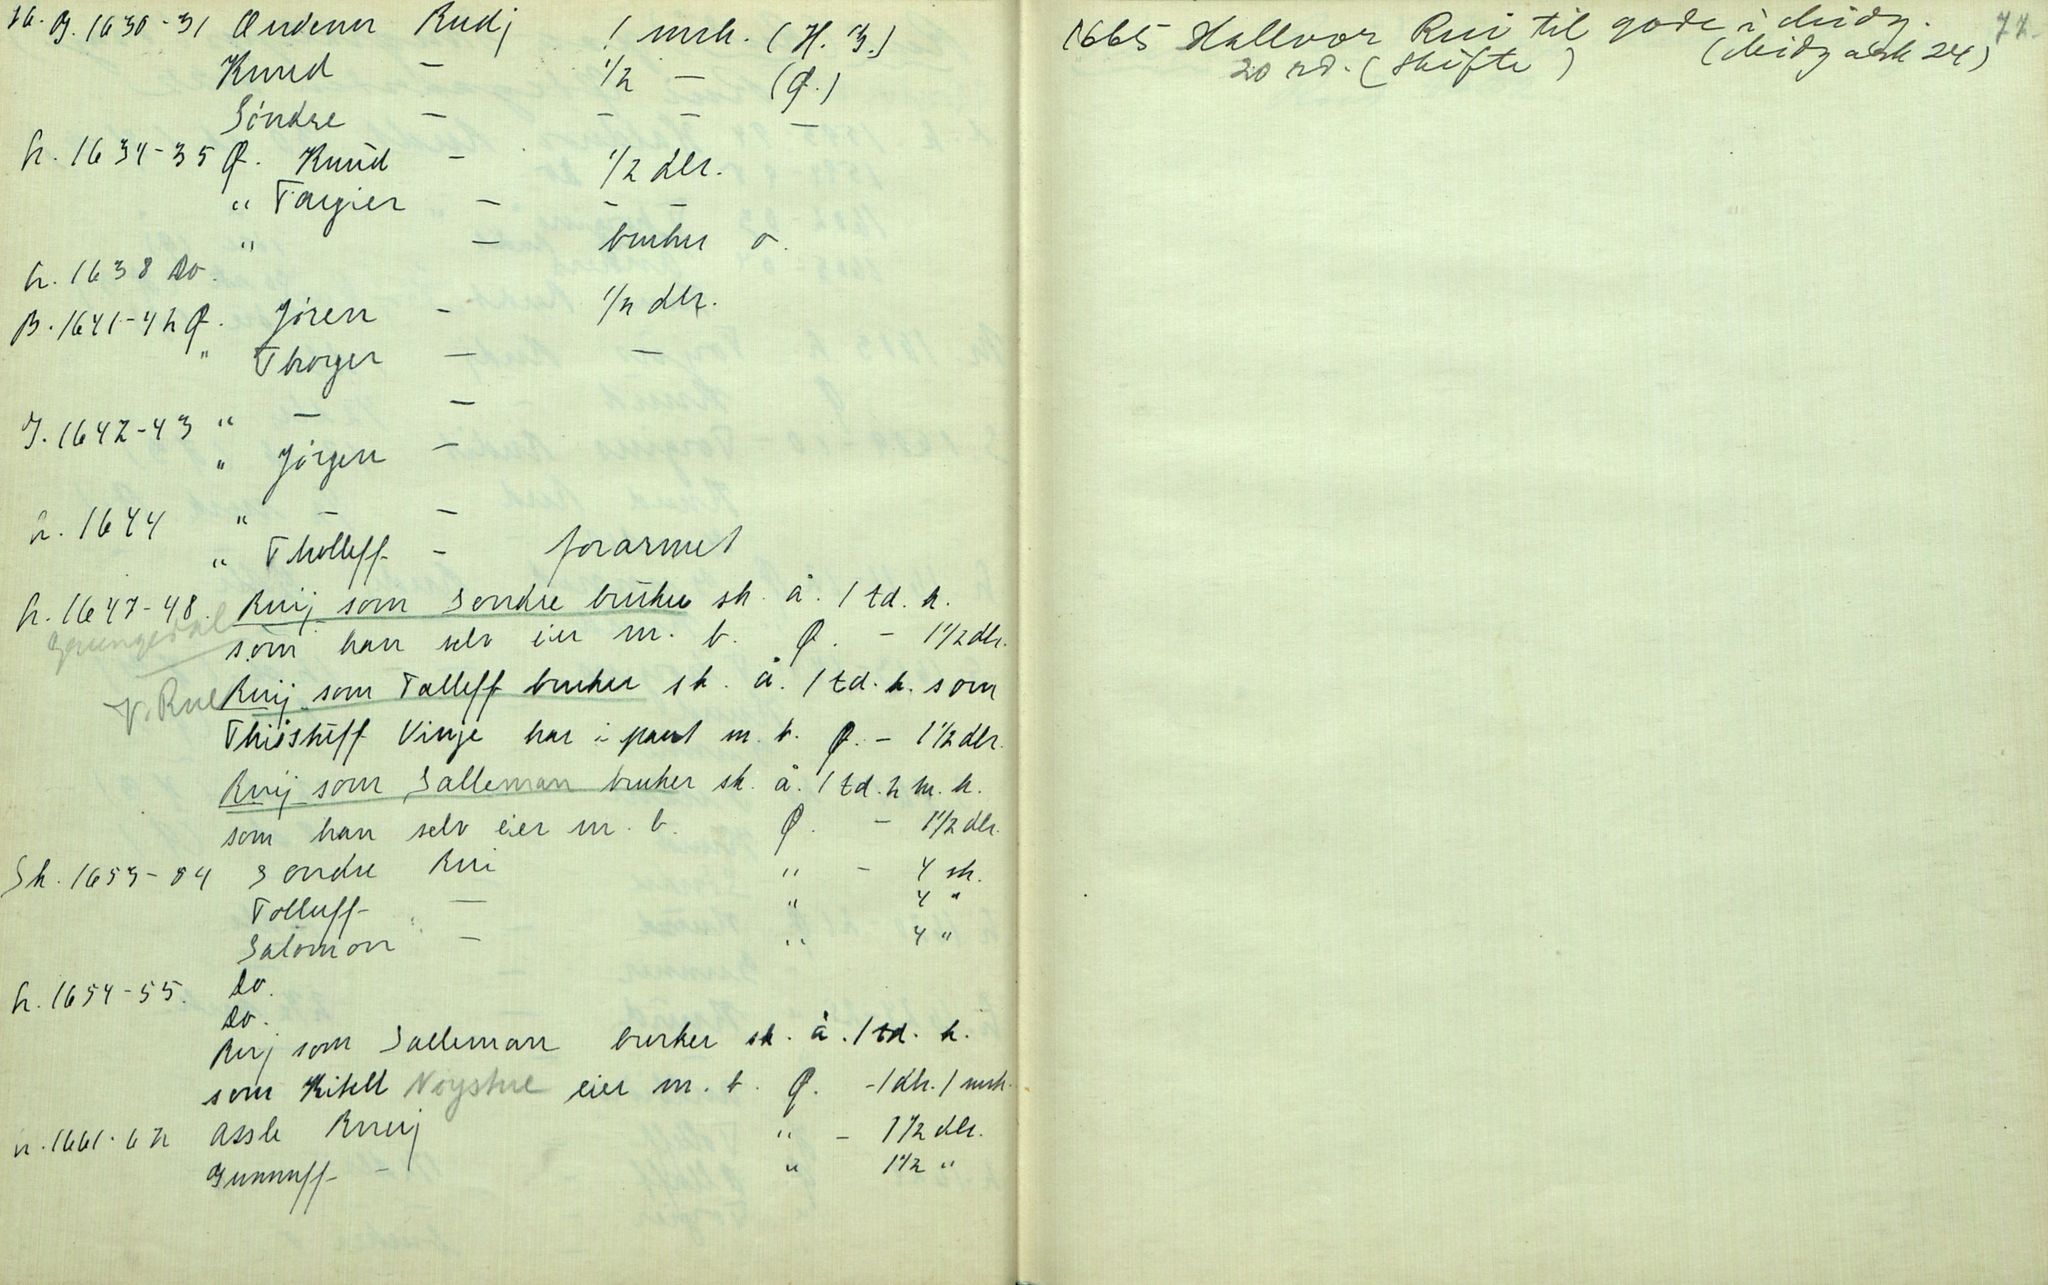 1630-31 Rudj 1 mrk. (H. B.)
Knud - 1/2 - (Ø.)
Söndre - - - -
L. 1634-35 Ø. Knud - 1/2 dlr.
" Targier - - -
" - bruker o.
L. 1638 Do.
B. 1641-42 Ø. Jören - 1/2 dlr.
" Thorger - -
J. 1642-43 " - -
" Jörgen -
L. 1644 " - -
" Tholleff - forarmet
L. 1647-48. Ruij som Sondre bruker sk. å. 1 td. k.
Grungedal
som han selv eier m. b. Ø. - 1 1/2 dlr.
V. Rue Ruij som Tolleff bruker sk. å. 1 td. k. som
Vinje har i pant m. b. Ø. - 1 1/2 dlr.
Ruij som Salleman bruker sk. å. 1 td. k.
som han selv eier m. b. Ø. - 1 1/2 dlr.
Sk. 1653-54 Sondre Rui " - 4 sk.
Tolluff - " 4 "
Salomon - " 4 "
L. 1654-55. Do.
Do.
Ruj som Salleman bruker sk. å. 1 td. k.
som Kitell Nöystue eier m. b. Ø. - 1 dlr. 1 mrk.
1661-62 Assle Ruuij " - 1 1/2 dlr.
Gunnuff - " 1 1/2 "
1665 Hallvor Rui til gode i
20 rd. (Skifte)
77.